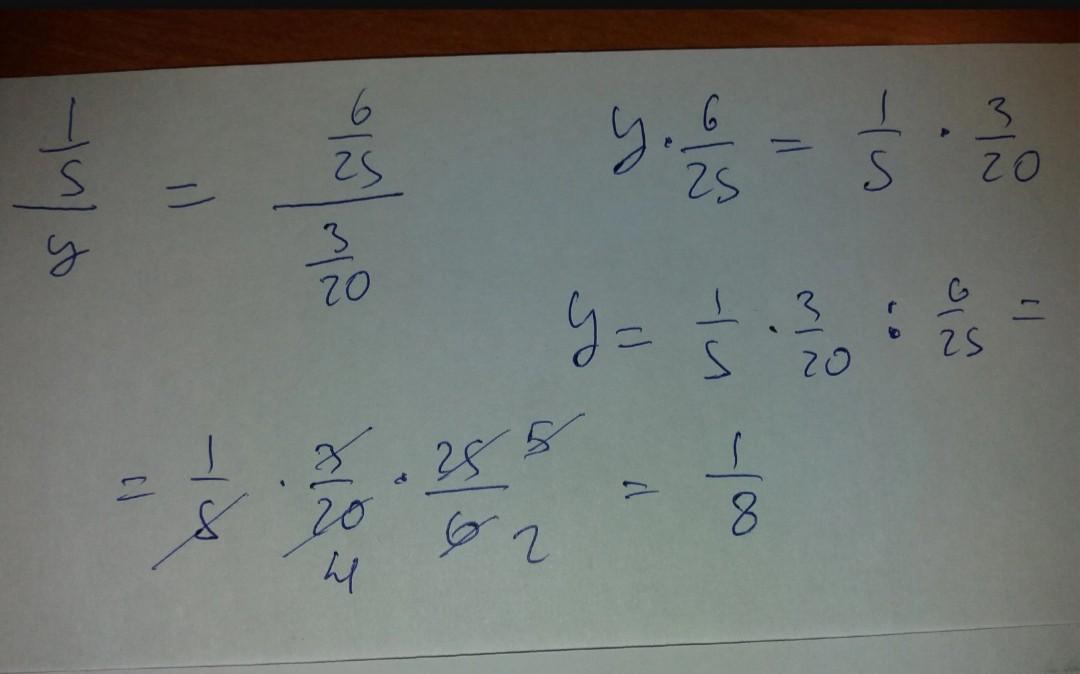 (1/5)/y = (6/25)/(3/20)
y · 6/25 = 1/5 · 3/20
y = 1/5 · 3/20 : 6/25 =
= 1/5 · 3/20 4 · 25 5/6 2 = 1/8